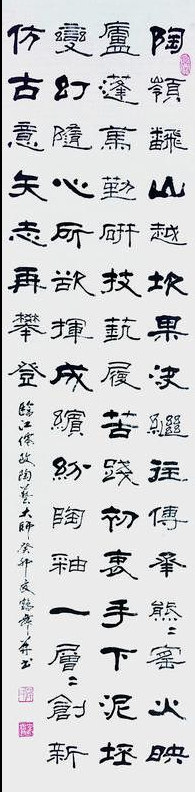 陶嶺翻山越坎果決繼往傳承熊〻窯火映
廬蓬蒿勤研技藝履苦踐初衷手下泥坯
變幻隨心所欲揮成繽紛陶釉一層〻創新
仿古意矢志再攀登
臨江陶藝大師癸卯書